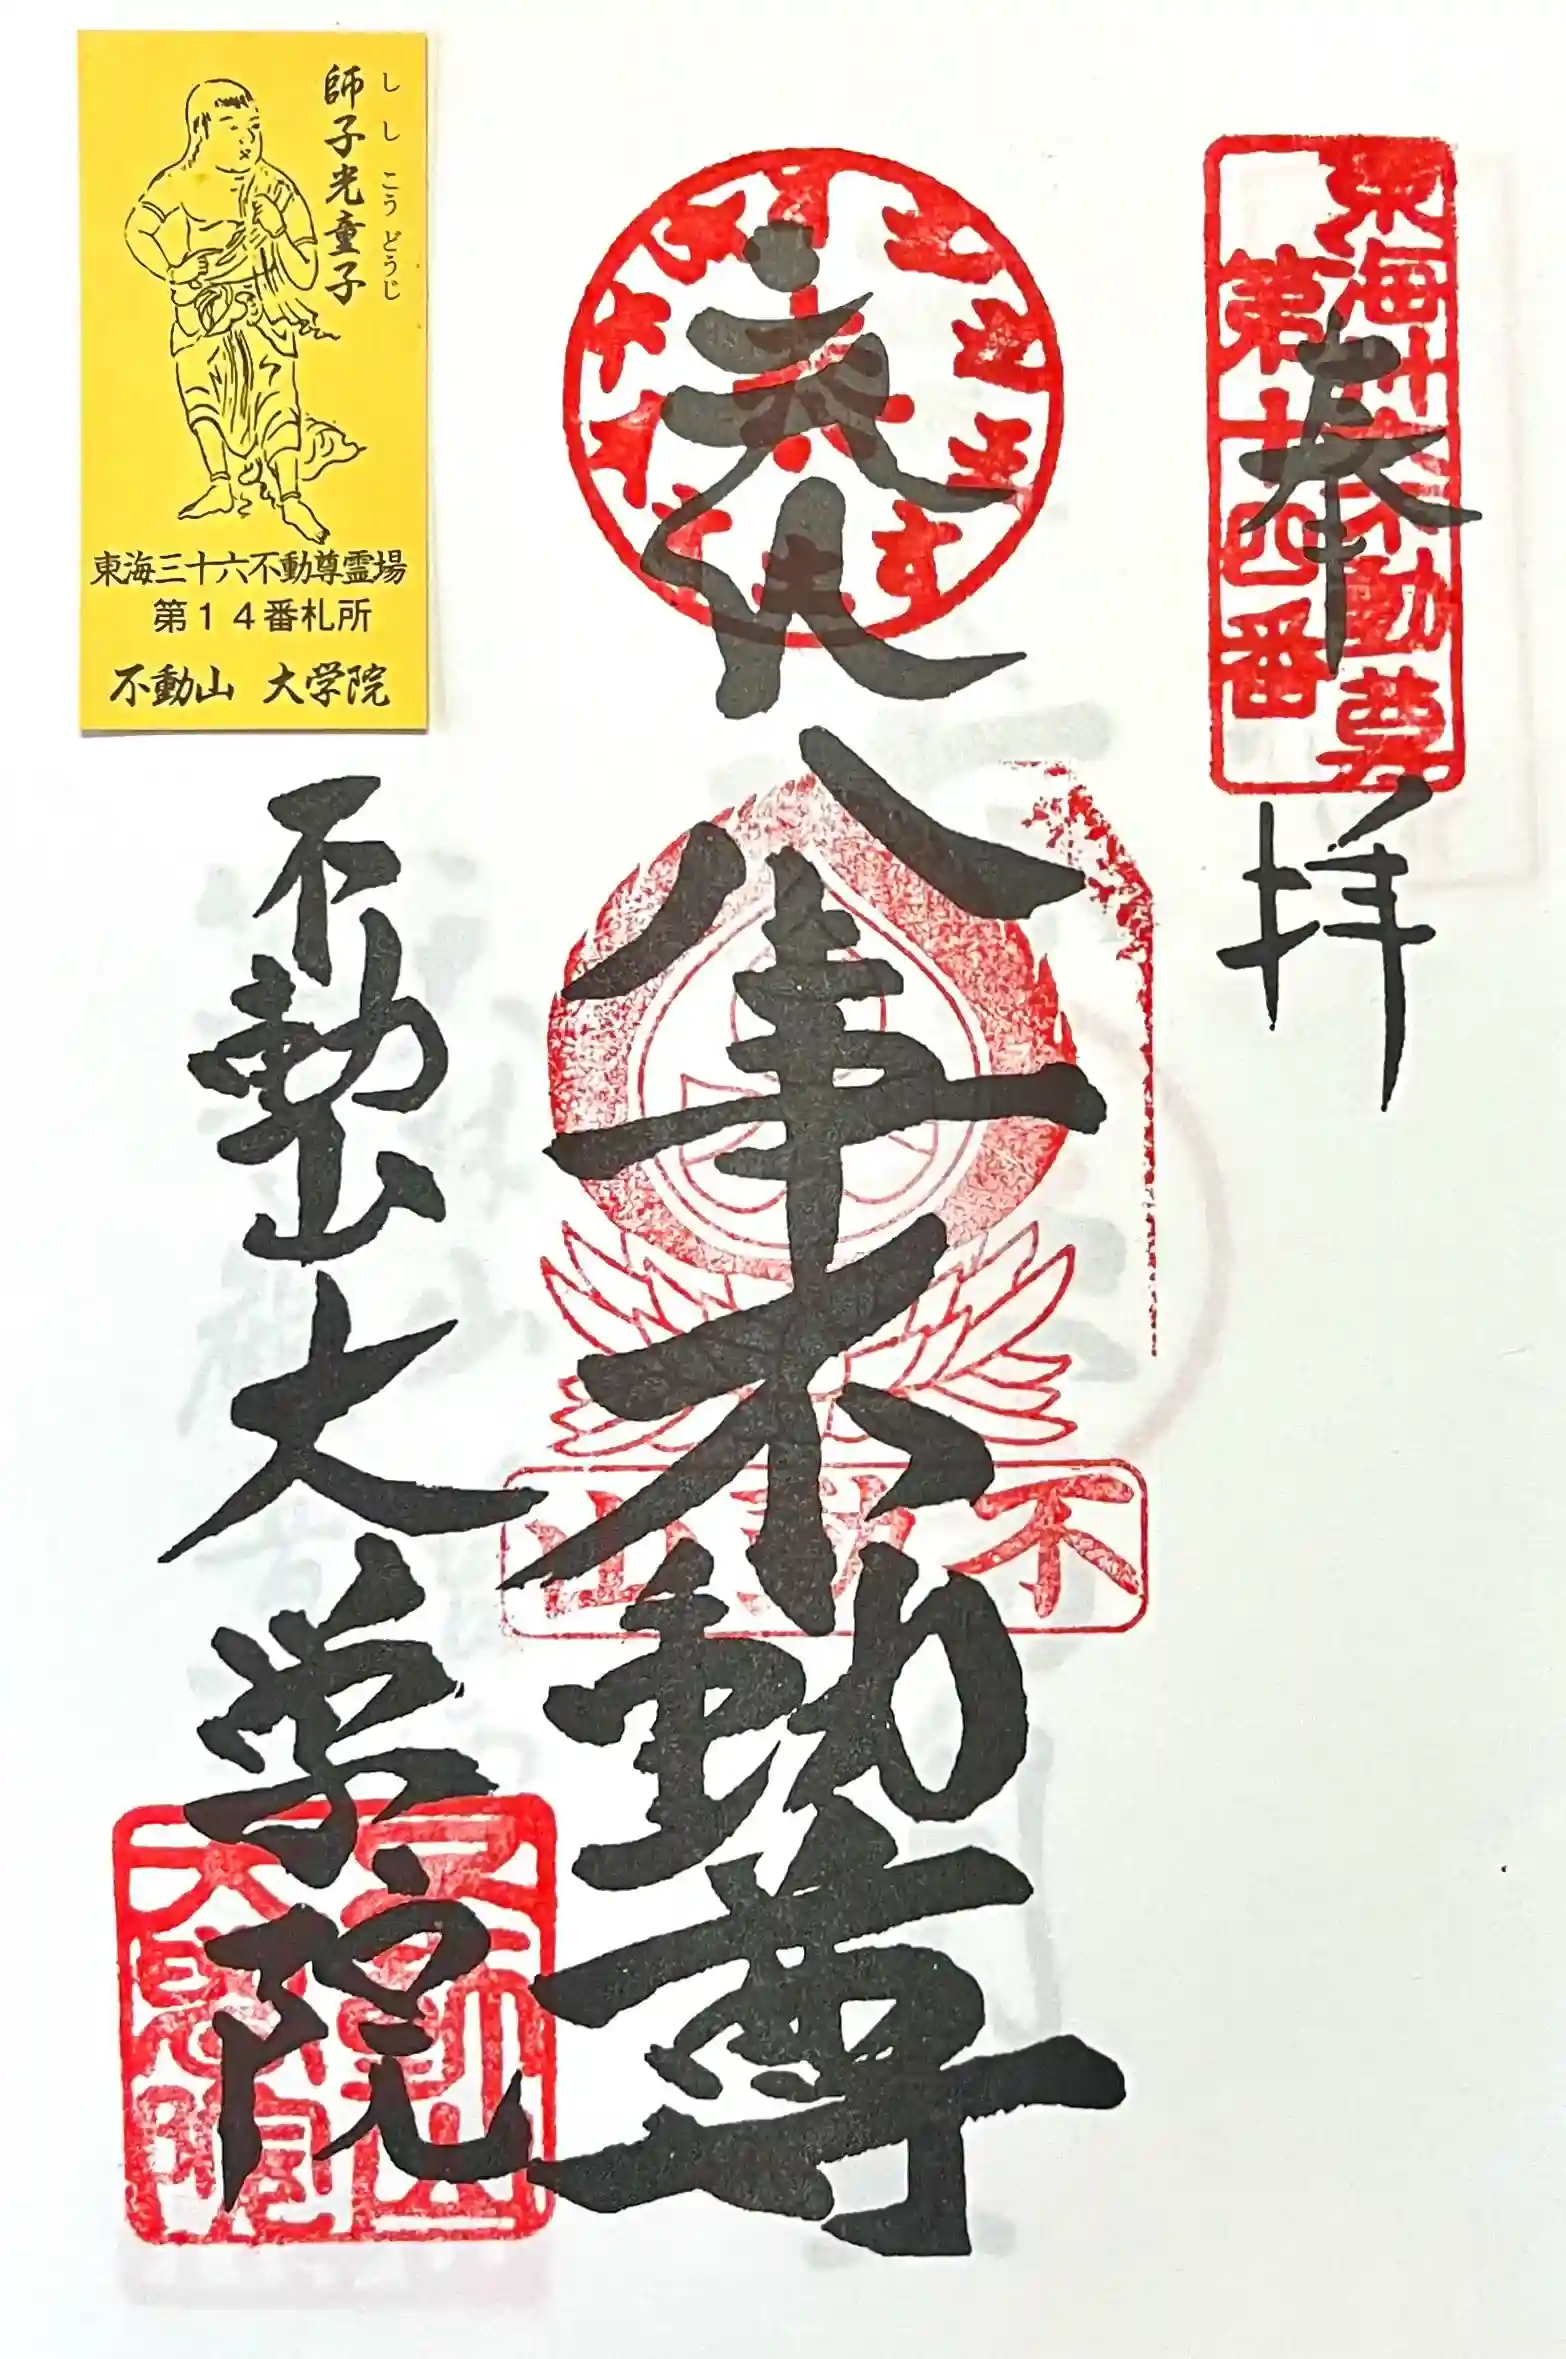 東海三十六不動尊
第十四番
奉拝
八事不動尊
不動山
不動山大学院
師子光童子
ししこうどうじ
東海三十六不動尊霊場
第14番札所
不動山 大学院